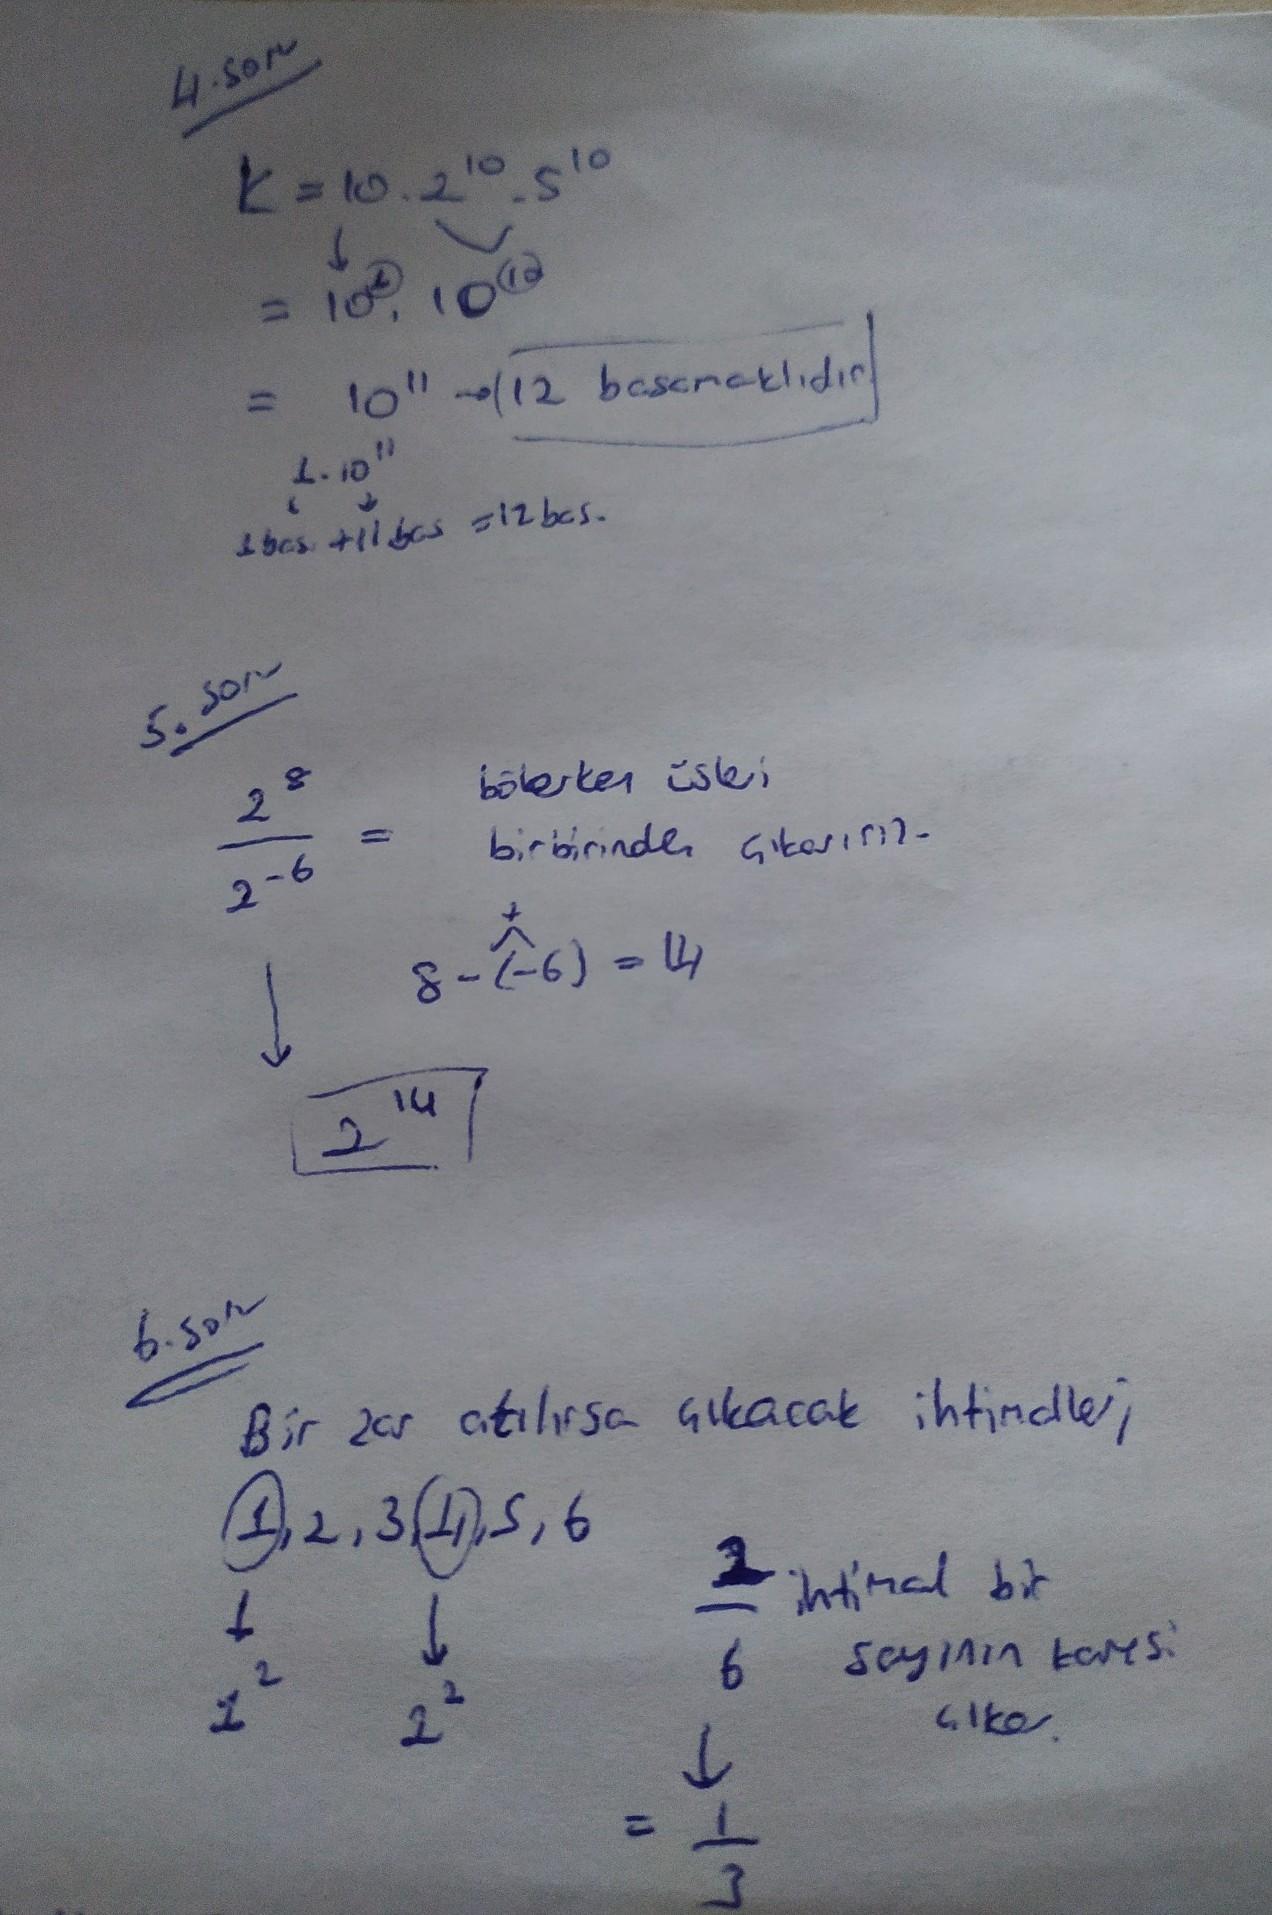 4. soru
K = 10 . 2^10 . 5^10
= 10^1 . 10^10
= 10^11 → 12 basamaklıdır
1 . 10^11
1 bas. + 11 bas = 12 bas.
5. soru
2^8 / 2^-6 =
bölerken üsleri
birbirinden çıkarırız.
+
8 - (-6) = 14
2^14
6. soru
Bir zar atılırsa çıkacak ihtimaller;
1, 2, 3, 4, 5, 6
1^2 2^2
2/6 ihtimal bir
sayının karesi
çıkar.
= 1/3